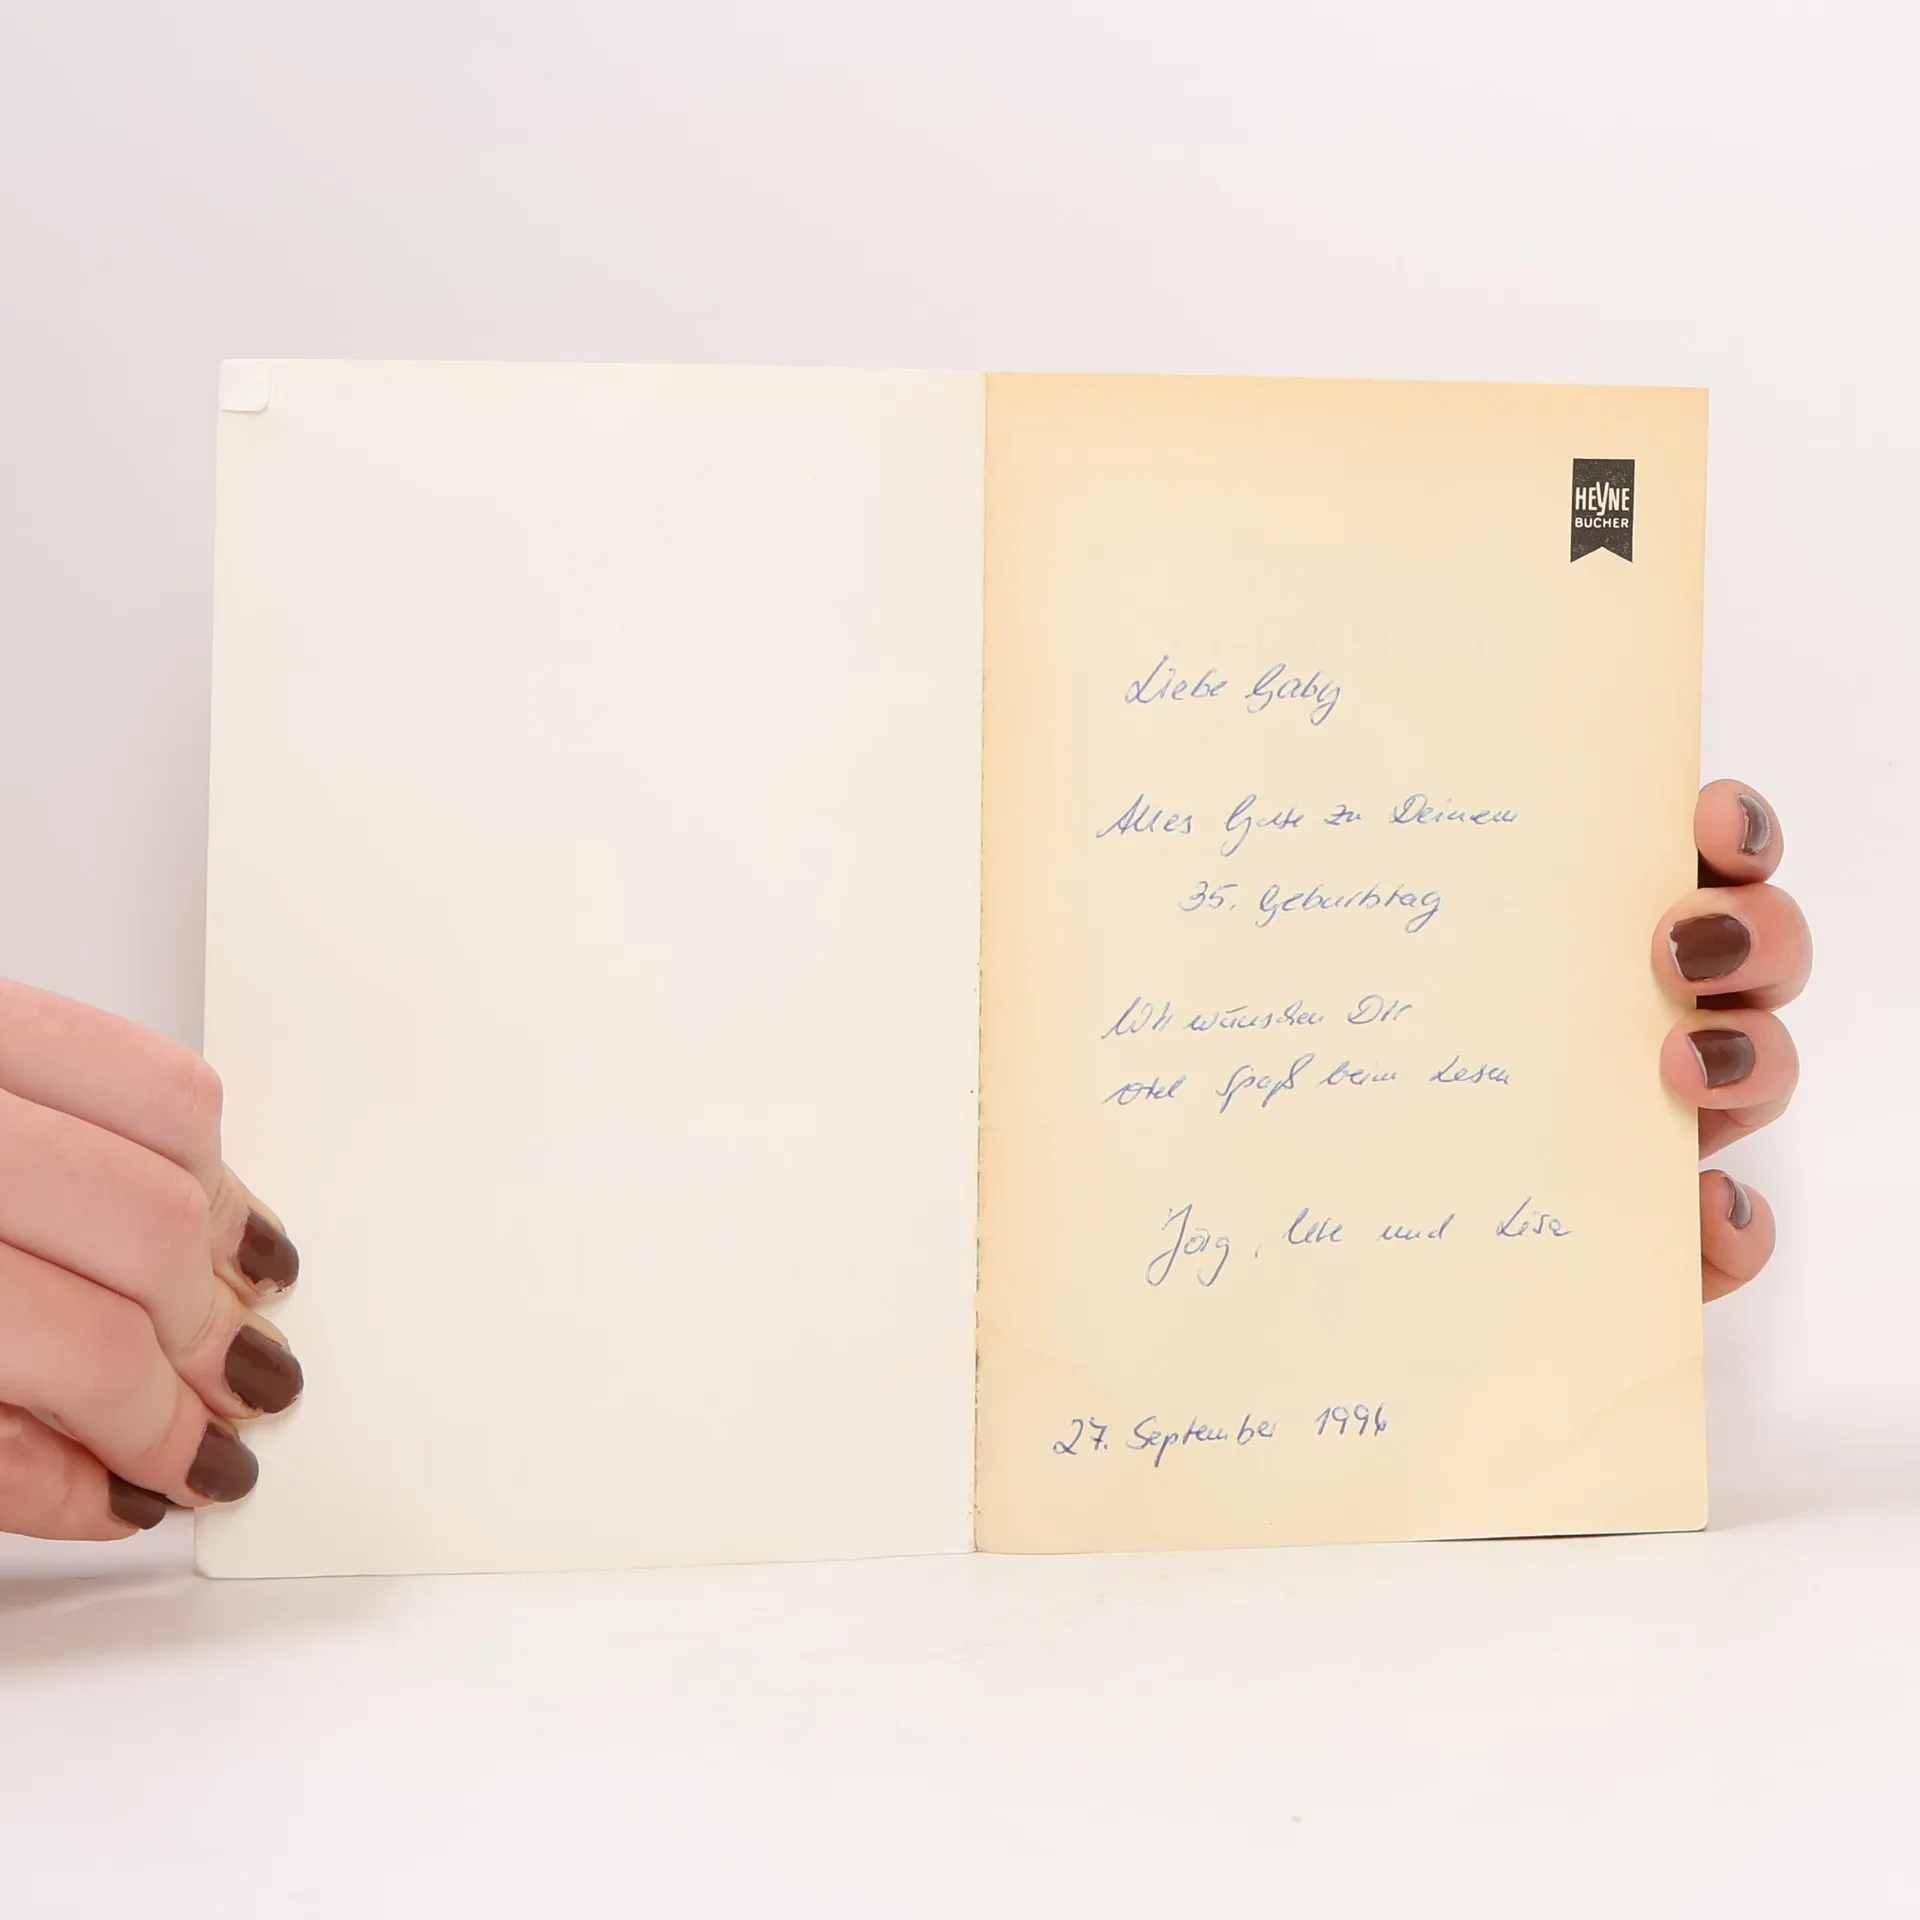 HEYNE
BÜCHER
Liebe Gaby
Alles Gute zu Deinem
35. Geburtstag
Wir wünschen Dir
viel Spaß beim Lesen
Jörg, Ute und Lisa
27. September 1996